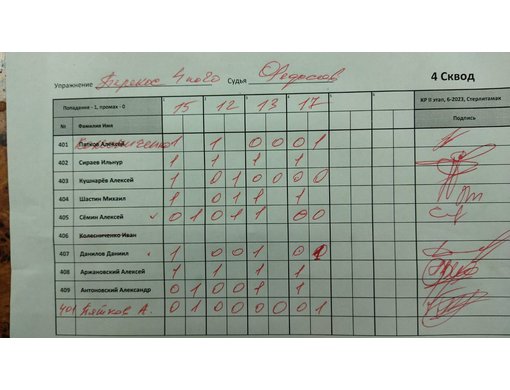 Упражнение Перекос 4 ного Судья Федосов
4 Сквод
Попадание - 1, промах - 0 15 12 13 17 КР II этап, 6-2023, Стерлитамак
№ Фамилия Имя Подпись
401 Алексей 1 1 0 0 0 0 1
402 Сираев Ильнур 1 1 1 1
403 Кушнарёв Алексей 1 0 1 0 0 0 0
404 Шастин Михаил 1 0 1 1 1
405 Сёмин Алексей 0 1 0 1 1 0 0
406 Колесниченко Иван
407 Данилов Даниил 1 0 0 1 0
408 Аржановский Алексей 1 1 1 1
409 Антоновский Александр 0 1 0 0 1 1
401 Пяшков А. 0 1 0 0 0 0 0 1